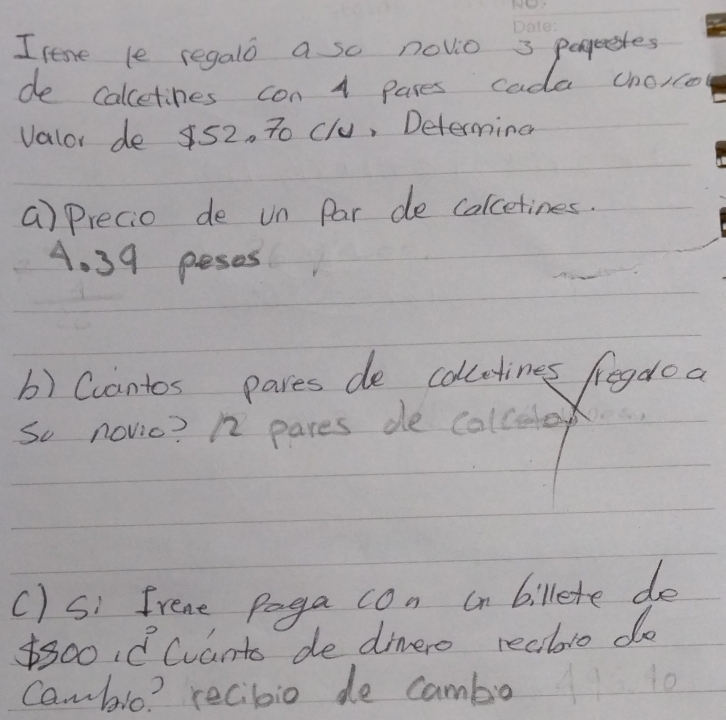 NO.
Date:
Irene le regaló a so novio 3 paquetes
de calcetines con 4 pares cada uno, con
valor de $52.70 c/u. Determina
a) Precio de un Par de calcetines.
4.39 pesos
b) Cuántos pares de calcetines regalo a
su novio? 12 pares de
c) Si Irene Paga con un billete de
¿Cuánto de dinero recibio de
Cambio? recibio de cambio